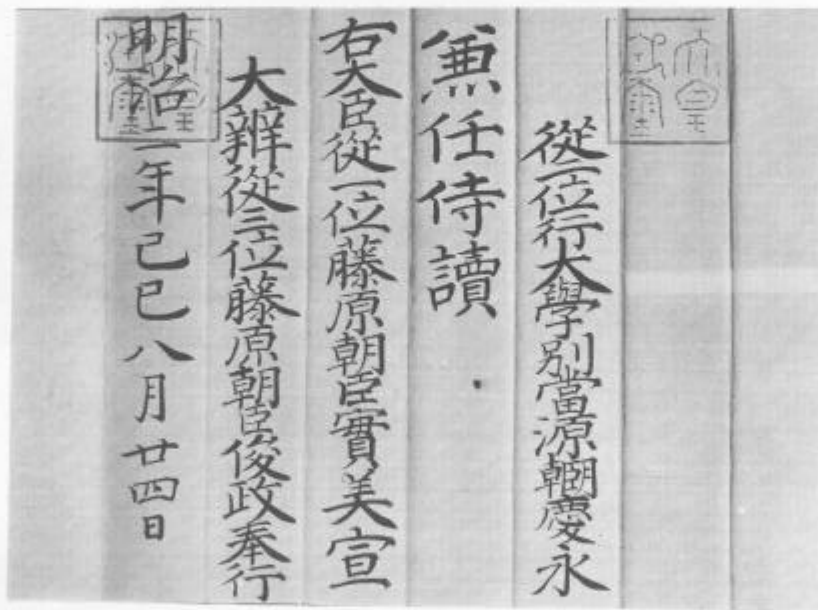 天皇御璽
從一位行大學別當源朝臣慶永
兼任侍讀
右大臣從一位藤原朝臣實美宣
大辨從三位藤原朝臣俊政奉行
明治二年己巳八月廿四日
天皇御璽